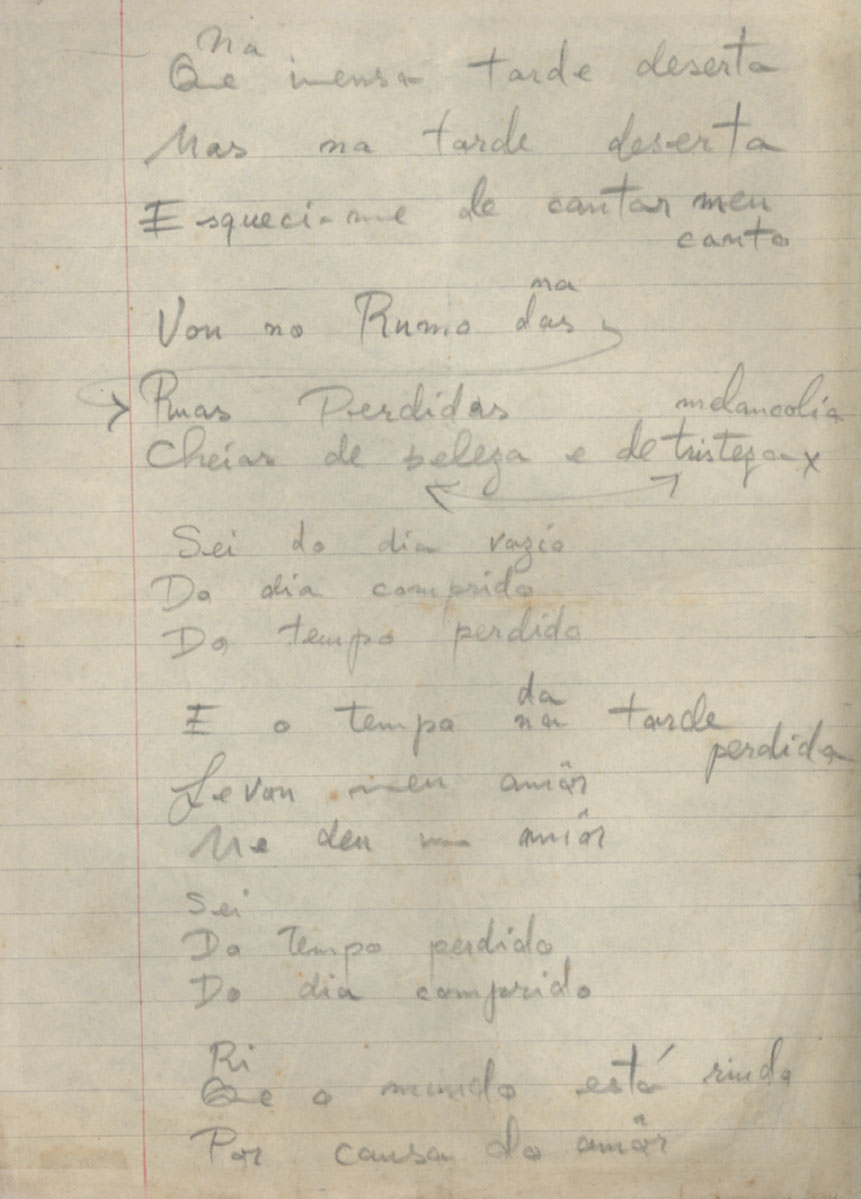 Na
Que imensa tarde deserta
Mas na tarde deserta
Esqueci-me de cantar meu
canto
na
Vou no Rumo das
Ruas Perdidas melancolia
Cheias de beleza e de tristeza x
Sei do dia vazio
Do dia comprido
Do tempo perdido
da
E o tempo na tarde
perdida
Levou meu amôr
Me deu um amôr
Sei
Do Tempo perdido
Do dia comprido
Ri
Que o mundo está rindo
Por causa do amôr